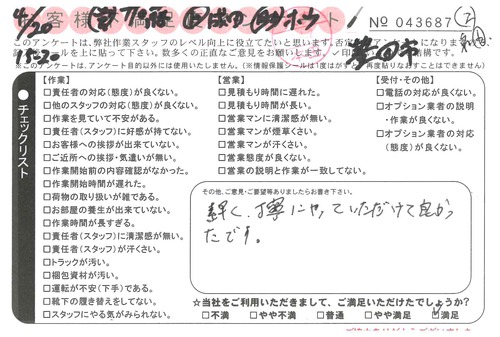 4/20
15:20
No 043687
このアンケートは、弊社作業スタッフのレベル向上に役立てたいと思います。
【作業】
□責任者の対応(態度)が良くない。
□他のスタッフの対応(態度)が良くない。
□作業を見ていて不安がある。
□責任者(スタッフ)に好感が持てない。
□お客様への挨拶が出来ていない。
□ご近所への挨拶・気遣いが無い。
□作業開始前の内容確認がなかった。
□作業開始時間が遅れた。
□荷物の取り扱いが雑である。
□お部屋の養生が出来ていない。
□作業時間が長すぎる。
□責任者(スタッフ)に清潔感が無い。
□責任者(スタッフ)が汗くさい。
□トラックが汚い。
□梱包資材が汚い。
□運転が不安(下手)である。
□靴下の履き替えをしてない。
□スタッフにやる気がみられない。
【営業】
□見積もり時間に遅れた。
□見積もり時間が長い。
□営業マンに清潔感が無い。
□営業マンが煙草くさい。
□営業マンが汗くさい。
□営業態度が良くない。
□営業の説明と作業が一致してない。
【受付・その他】
□電話の対応が良くない。
□オプション業者の説明
・作業が良くない。
□オプション業者の対応
(態度)が良くない。
チェックリスト
その他、ご意見・ご要望等ありましたらお書き下さい。
素早く、丁寧にやっていただけて良かっ
たです。
☆当社をご利用いただきまして、ご満足いただけたでしょうか?
□不満 □やや不満 □普通 □やや満足 ☑満足